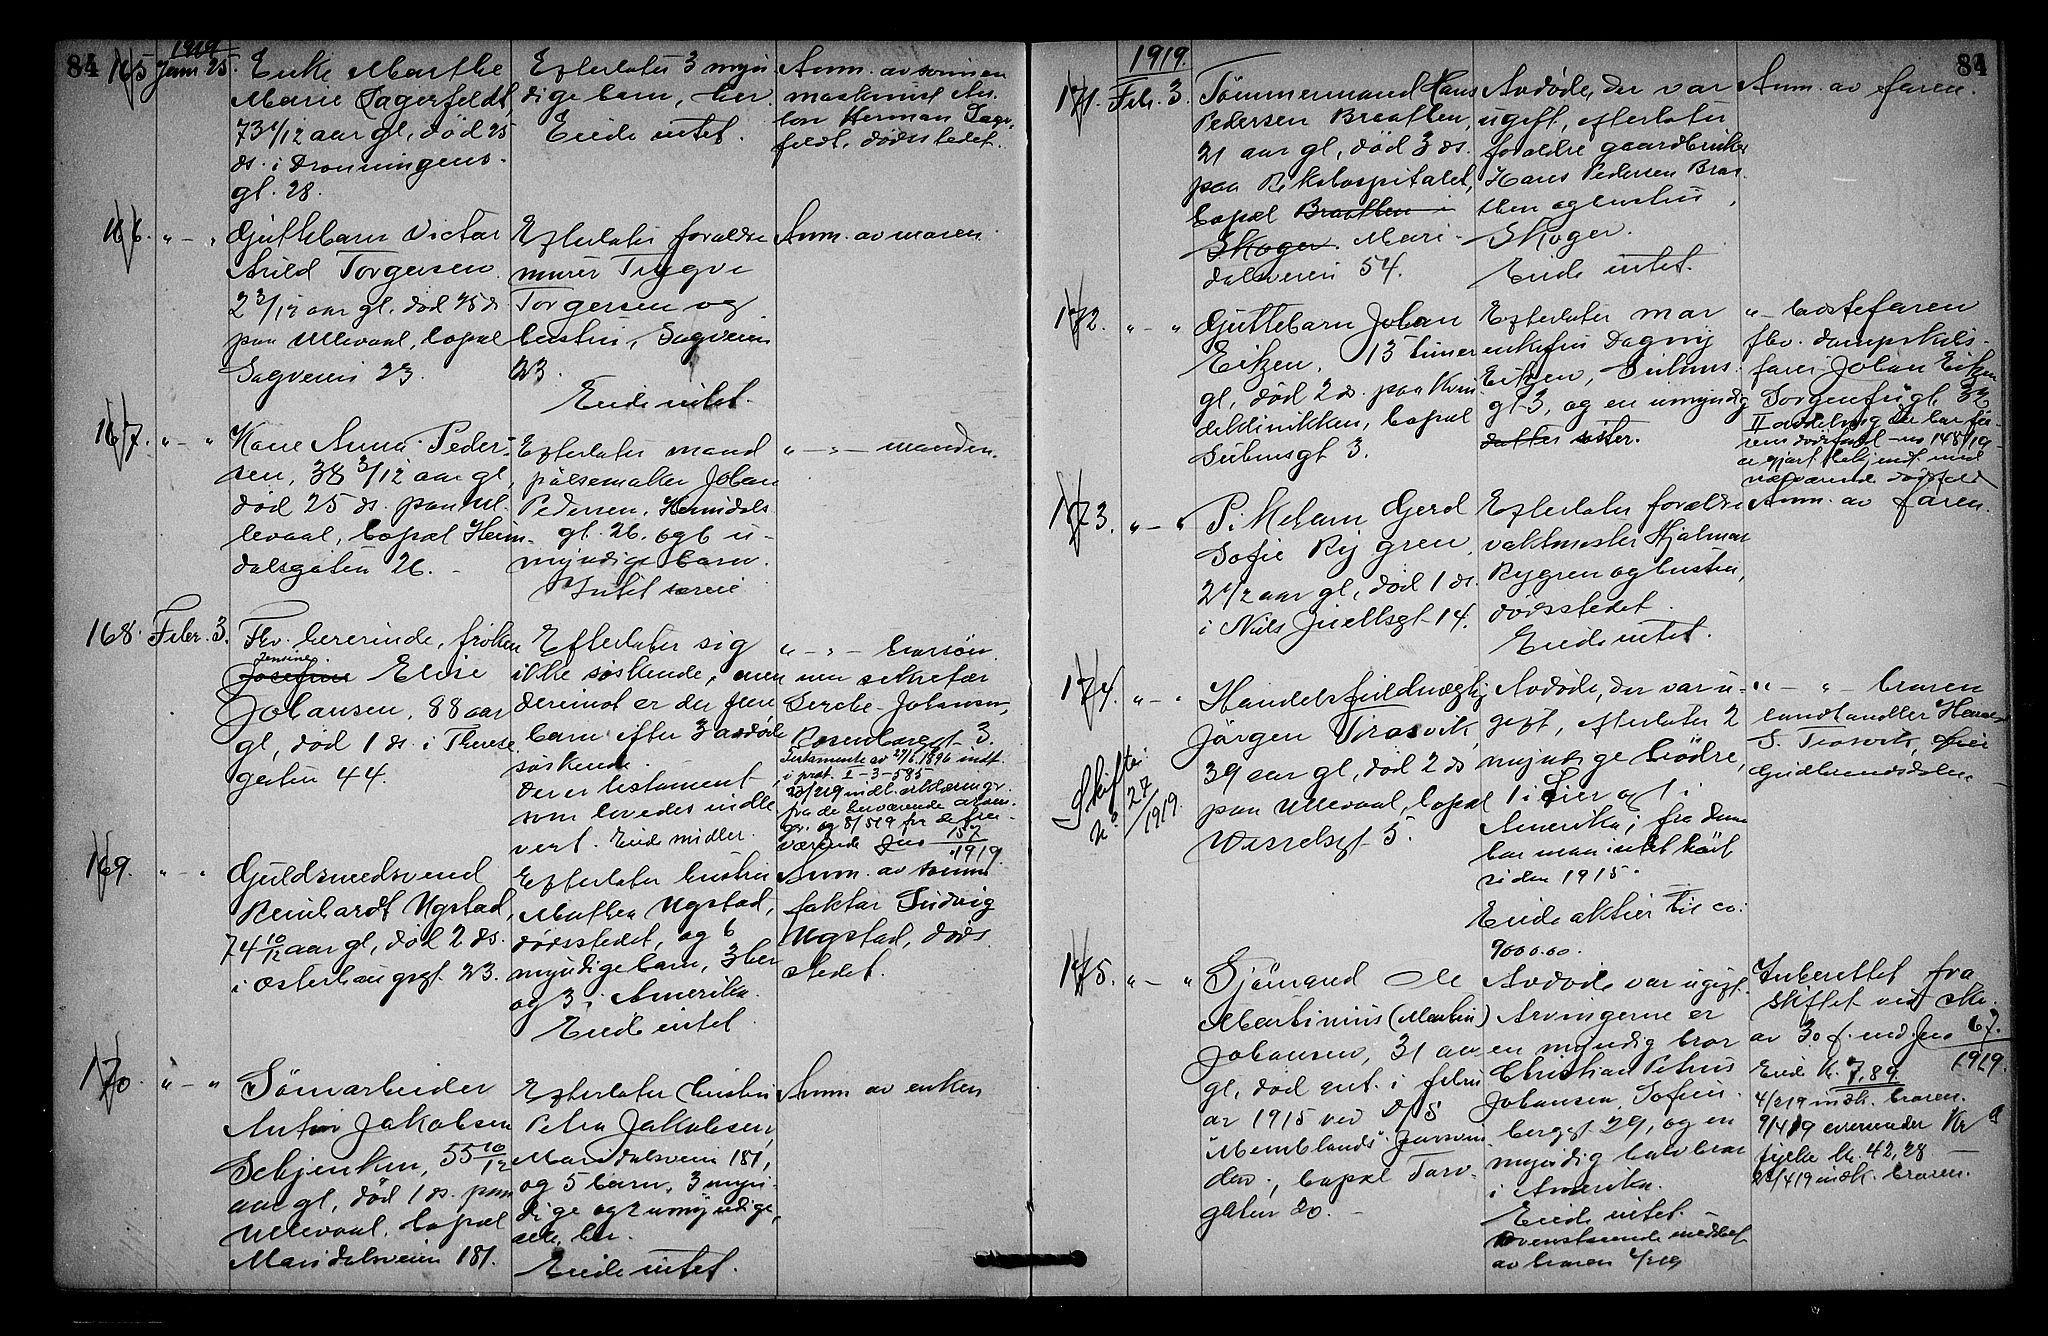 84
1919
165 Janr 25.
Enke Marthe
Marie Lagerfeldt,
73 1/12 aar gl, död 25
ds. i Dronningens
gt. 28.
Efterlater 3 myn
dige barn, her.
Eiede intet.
Anm. av sönnen
maskinist An
ton Herman Lager
feldt, dödsstedet.
166. " - "
Guttebarn Victor
Arild Torgersen
2 3/12 aar gl. död 25 ds
paa Ullevaal, bopæl
Sagveien 23.
Efterlater forældre
murer Trygve
Torgersen og
hustru, Sagveien
23.
Eiede intet.
Anm. av moren.
167. " - "
Kone Anna Peder-
sen, 38 3/12 aar gl,
död 25 ds. paa Ul.
levaal, bopæl Heim-
dalsgaten 26. -
Efterlater mand
pölsemaker Johan
Pedersen, Heimdals
gt. 26. og 6 u-
myndige barn.
Intet særeie
" - " - manden.
168. Febr. 3.
Fhv. lærerinde, fröken
Jensine
Josefine Elise
Johansen, 88 aar
gl, död 1 ds. i Therese
gaten 44.
Efterlater sig
ikke söskende, men
derimot er der flere
barn efter 3 avdöde
söskende.
Der er testament
som lovedes indle
vert. Eiede midler.
" - " - brorsön
sekretær
Johansen,
Rosenborggt 3.
Testamente av 27/6 1896 indt.
i prot. I-3-585
fra de herværende arvin.
gr. og 8/5 19 for de fra-
værende Jno 157
1919.
169. " - "
Guldsmedsvend
Reinhardt Ugstad,
74 10/12 aar gl, död 2 ds.
i Österhaugsgt. 23.
Efterlater hustru
Mathea Ugstad,
dödsstedet, og 6
myndige barn, 3 her
og 3 i Amerika.
Eiede intet.
Anm. av sönnen
faktor Ludvig
Ugstad, döds
stedet.
170. " - "
Sömarbeider
Anton Jakobsen
Schjenken, 55 10/12
aar gl, död 1 ds. paa
Ullevaal, bopæl
Maridalsveien 181.
Efterlater hustru
Petra Jakobsen,
Maridalsveien 181,
og 5 barn, 3 myn-
dige og 2 umyndige,
her.
Eiede intet.
Anm. av enken
84
1919.
171. Febr. 3.
Tömmermand Hans
Pedersen Braathen,
21 aar gl, död 3 ds.
paa Rikshospitalet,
bopæl Braathen i
Skoger. Mari-
dalsveien 54.
Avdöde, der var
ugift, efterlater
forældre gaardbruker
Hans Pedersen Braa
then og hustru,
Skoger.
Eiede intet.
Anm. av faren.
172. " - "
Guttebarn Johan
Eitzen, 15 timer
gl, död 2 ds. paa Kvin
deklinikken, bopæl
Sibusgt 3.
Efterlater mor
enkefru Dagny
Eitzen, Sibus.
gt 3, og en umyndig
datter söster.
" - bestefaren
fhv. dampskibs-
förer Johan Eitzen
Sorgenfrigt. 32
II avdeling der har fa-
rens dödsfald no 148/19
er gjort bekjendt med
nærværende dödsfald
173. " - "
P. Mebarn Gerd
Sofie Rygren,
2 1/2 aar gl, död 1 ds.
i Niels Juellsgt 14.
Efterlater forældre
vaktmester Hjalmar
Rygren og hustru,
dödsstedet.
Eiede intet.
Anm. av faren.
174. " - "
Skifte:
no 24/1919.
Handelsfuldmægtig
Jörgen Traasvik,
39 aar gl, död 2 ds
paa Ullevaal, bopæl
Wesselsgt 5.
Avdöde, der var u-
gift, efterlater 2
myndige brödre,
1 i Öier og 1 i
Amerika; fra denne
har man intet hört
siden 1915.
Eiede aktier til ca.
9000.00.
" - " - broren
landhandler
S. Traasvik, Öier
Gudbrandsdalen
175. " - "
Sjömand Ole
Martinius (Martin)
Johansen, 31 aar
gl, död ant. i febru
ar 1915 ved D/S
"Membland"s forsvin
den., bopæl Torv-
gaten 20. -
Avdöde var ugift.
Arvingerne er
en myndig bror
Christian Petrus
Johansen, Sofien.
berggt 29, og en
myndig halvbror
i Amerika.
Eiede intet.
Ovenstaaende meddelt
av broren 4/2 19
Inberettet fra
skiftet ved skr.
av 30 f. md. Jno 67.
1919.
Eied kr. 7,89.
4/2 19 indk. broren.
9/4 19
kr. 42,28.
22/4 19 indk. broren.